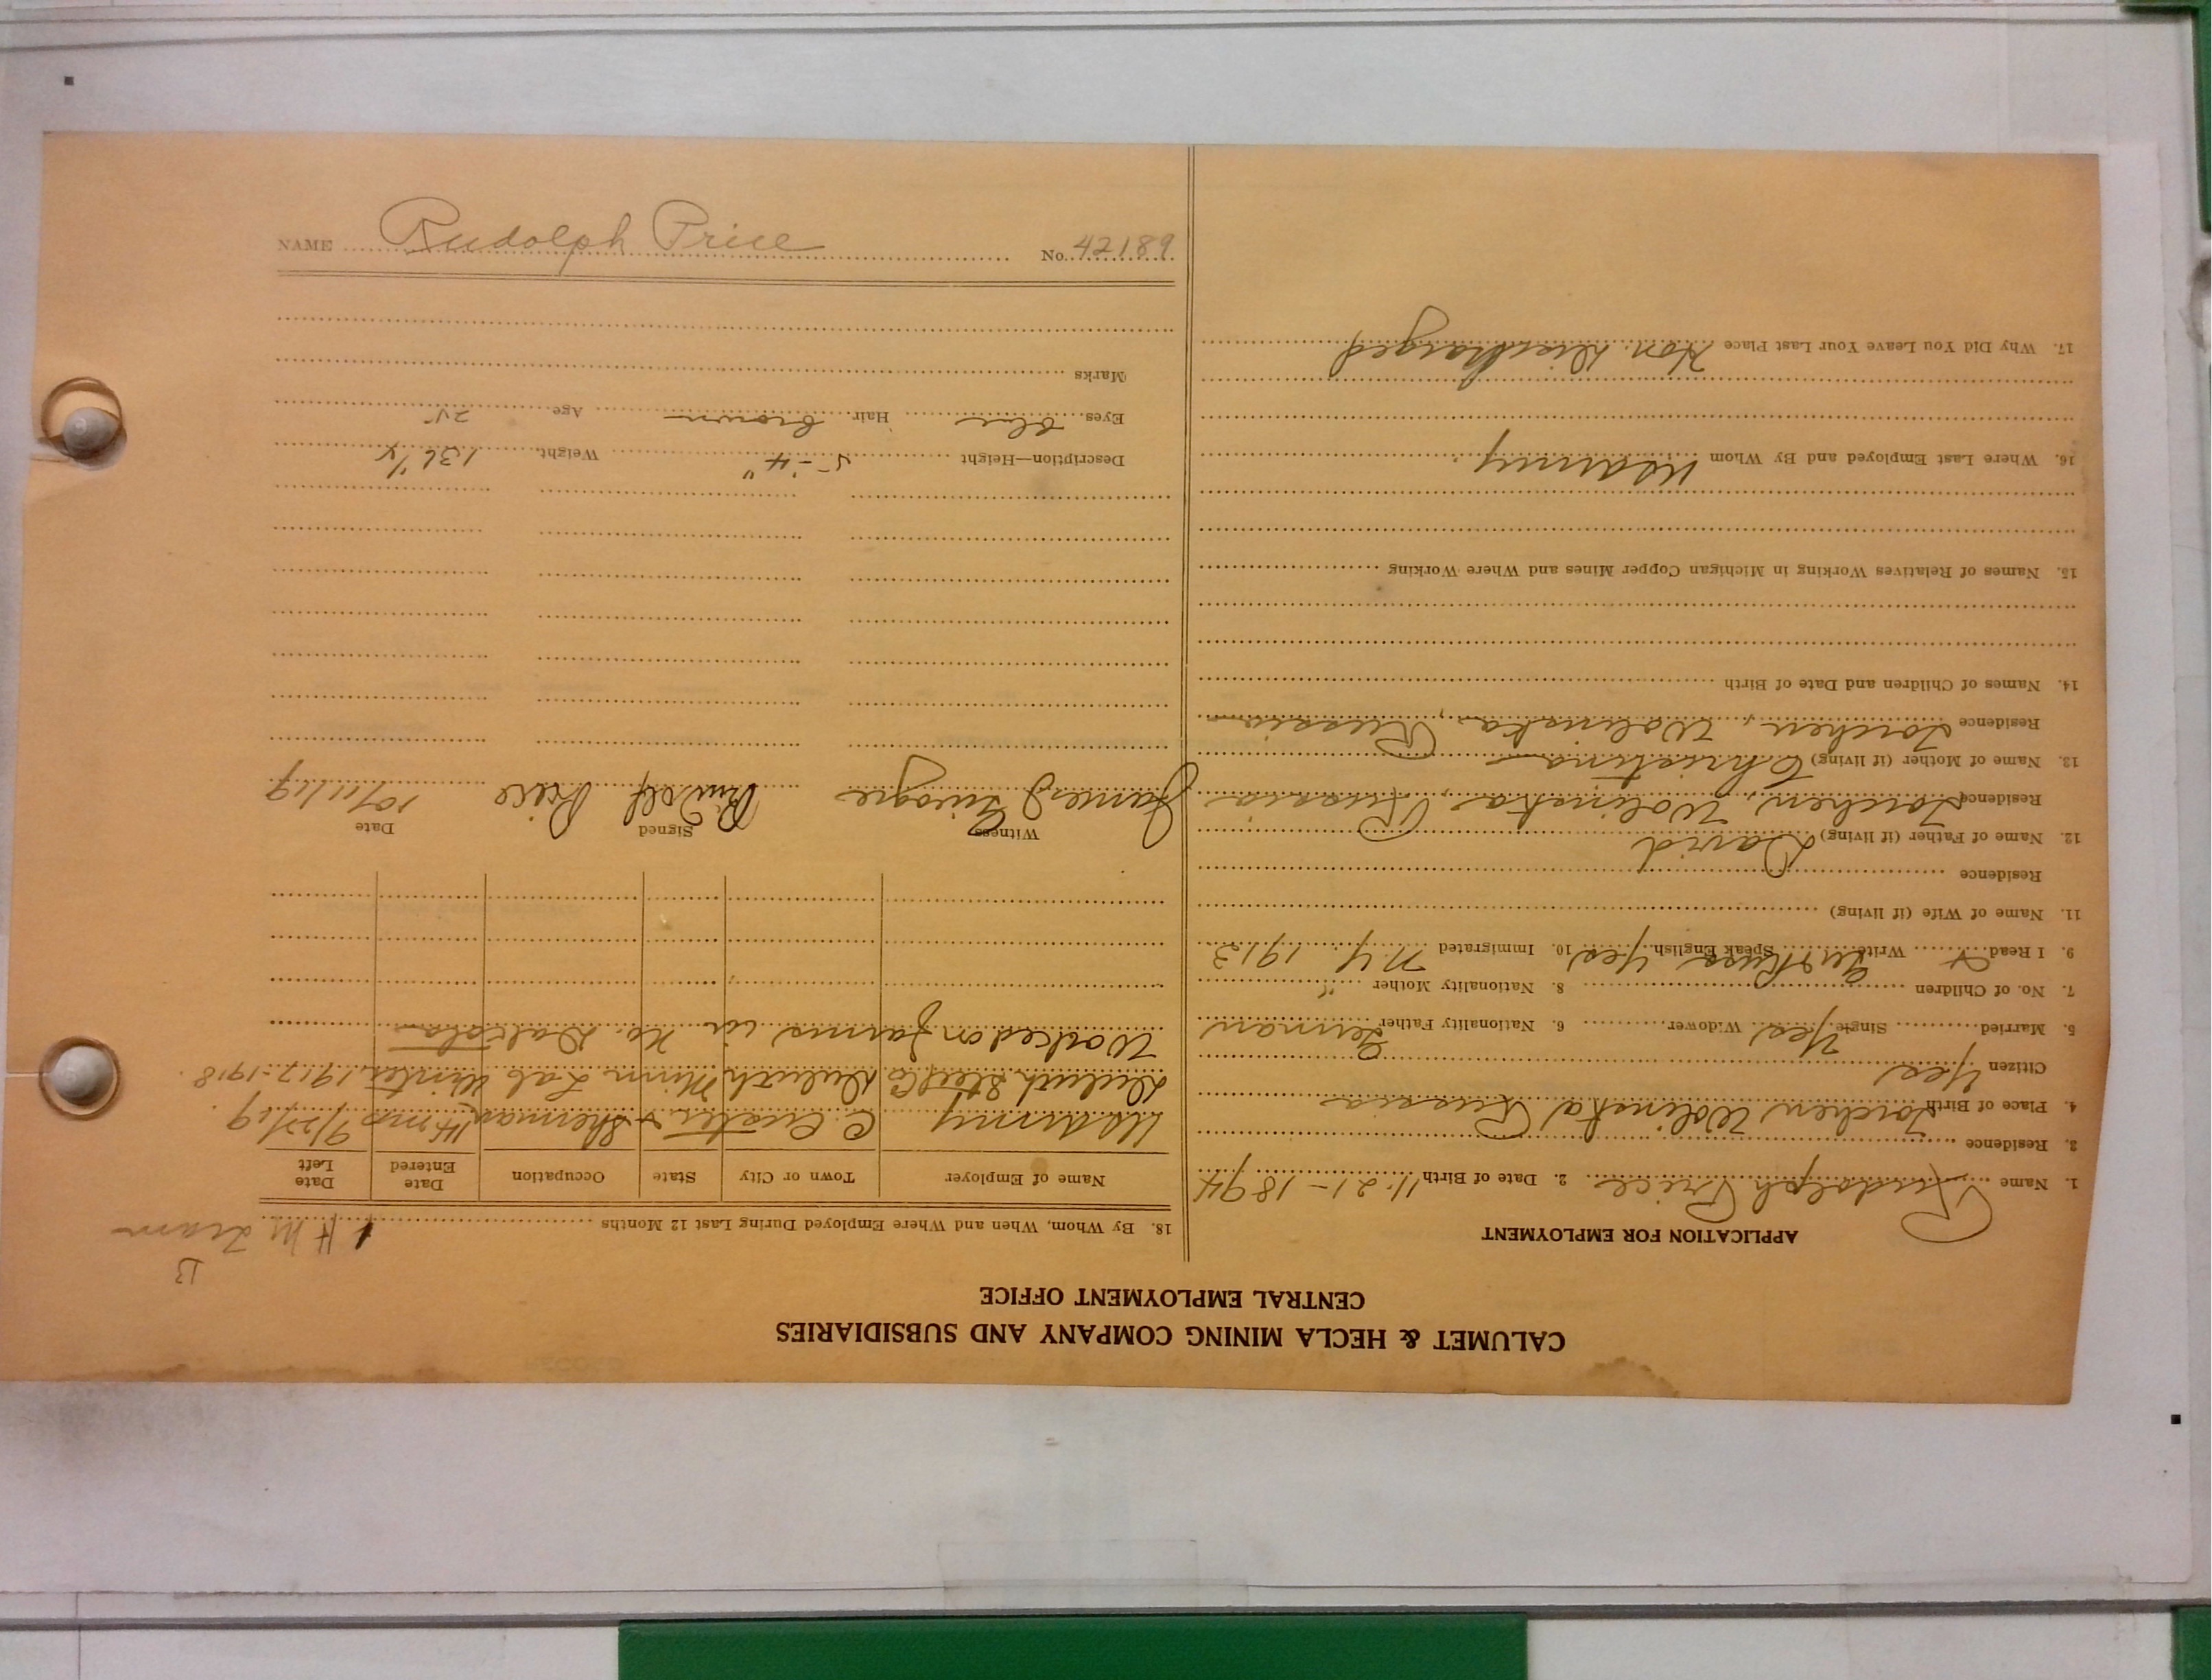 CALUMET & HECLA MINING COMPANY AND SUBSIDIARIES
CENTRAL EMPLOYMENT OFFICE
APPLICATION FOR EMPLOYMENT
1. Name Rudolph Price 2. Date of Birth 11-21-1894
3. Residence
4. Place of Birth Torchen Wolinska Russia
Citizen Yes
5. Married Single Yes Widower 6. Nationality Father German
7. No. of Children 8. Nationality Mother "
9. I Read Write Speak English Yes 10. Immigrated N.Y. 1913
11. Name of Wife (if living)
Residence
12. Name of Father (if living) David
Residence Torchen, Wolinska, Russia
13. Name of Mother (if living) Christina
Residence Torchen, Wolinska, Russia
14. Names of Children and Date of Birth
15. Names of Relatives Working in Michigan Copper Mines and Where Working
16. Where Last Employed and By Whom US Army
17. Why Did You Leave Your Last Place Hon. Discharged
13
H M Tram
18. By Whom, When and Where Employed During Last 12 Months
Name of Employer Town or City State Occupation Date Entered Date Left
US Army C. Custer & Sherman 14 mos 9/27/19
Duluth Steel Co Duluth Minn Lab Winter 1917-1918.
Worked on farms in No. Dakota
Witness Signed Date
James Rudolf Price 10/11/19
Description—Height 5'-4" Weight 136 1/2
Eyes blue Hair brown Age 25
Marks
NAME Rudolph Price No. 42189